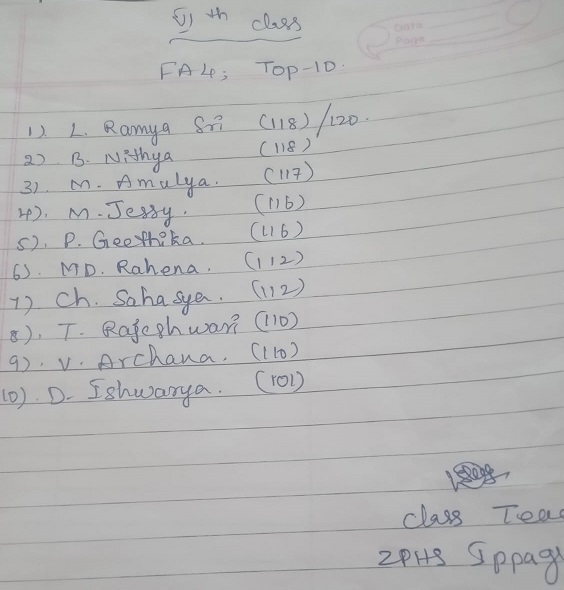 VI th class
DATE
Page
FA4; Top-10.
1). L. Ramya Sri (118)/120.
2). B. Nithya (118)
3). M. Amulya. (117)
4). M. Jessy. (116)
5). P. Geethika. (116)
6). MD. Rahena. (112)
7) Ch. Sahasya. (112)
8). T. Rajeshwari (110)
9). V. Archana. (110)
10). D. Ishwarya. (101)
class Tea
ZPHS Ippag